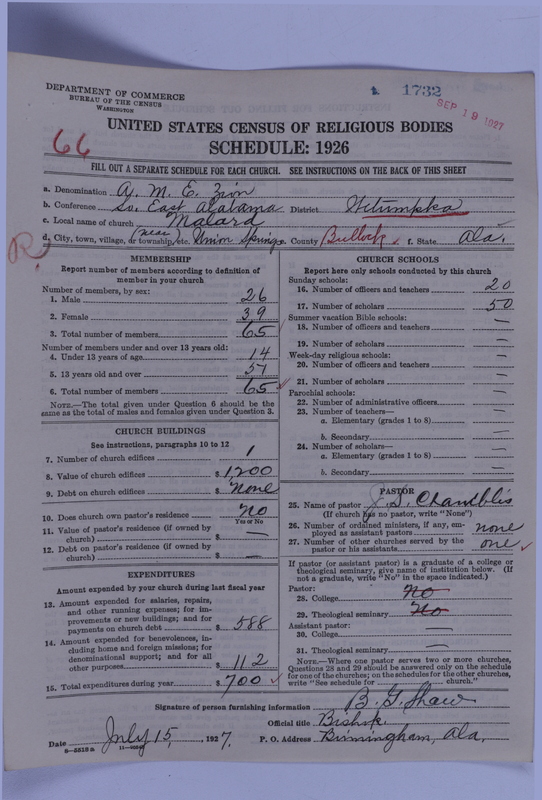 1732
SEP 19 1927
DEPARTMENT OF COMMERCE
BUREAU OF THE CENSUS
WASHINGTON
66
UNITED STATES CENSUS OF RELIGIOUS BODIES
SCHEDULE: 1926
FILL OUT A SEPARATE SCHEDULE FOR EACH CHURCH. SEE INSTRUCTIONS ON THE BACK OF THIS SHEET
a. Denomination A. M. E. Zion
b. Conference So. East Alabama District Wetumpka
c. Local name of church Malara
d. City, town, village, or township, etc. (near) Union Springs. County Bullock f. State Ala.
R
MEMBERSHIP
Report number of members according to definition of
member in your church
Number of members, by sex:
1. Male 26
2. Female 39
3. Total number of members 65
Number of members under and over 13 years old:
4. Under 13 years of age 14
5. 13 years old and over 51
6. Total number of members 65
NOTE.—The total given under Question 6 should be the
same as the total of males and females given under Question 3.
CHURCH BUILDINGS
See instructions, paragraphs 10 to 12
7. Number of church edifices 1
8. Value of church edifices $ 1,200
9. Debt on church edifices $ None
10. Does church own pastor's residence No
Yes or No
11. Value of pastor's residence (if owned by
church) $ —
12. Debt on pastor's residence (if owned by
church) $ —
EXPENDITURES
Amount expended by your church during last fiscal year
13. Amount expended for salaries, repairs,
and other running expenses; for im-
provements or new buildings; and for
payments on church debt $ 588
14. Amount expended for benevolences, in-
cluding home and foreign missions; for
denominational support; and for all
other purposes $ 112
15. Total expenditures during year $ 700
CHURCH SCHOOLS
Report here only schools conducted by this church
Sunday schools:
16. Number of officers and teachers 20
17. Number of scholars 50
Summer vacation Bible schools:
18. Number of officers and teachers —
19. Number of scholars —
Week-day religious schools:
20. Number of officers and teachers —
21. Number of scholars —
Parochial schools:
22. Number of administrative officers —
23. Number of teachers—
a. Elementary (grades 1 to 8) —
b. Secondary —
24. Number of scholars—
a. Elementary (grades 1 to 8) —
b. Secondary —
PASTOR
25. Name of pastor Chamblis
(If church has no pastor, write "None")
26. Number of ordained ministers, if any, em-
ployed as assistant pastors none
27. Number of other churches served by the
pastor or his assistants one
If pastor (or assistant pastor) is a graduate of a college or
theological seminary, give name of institution below. (If
not a graduate, write "No" in the space indicated.)
Pastor:
28. College No
29. Theological seminary No
Assistant pastor:
30. College —
31. Theological seminary —
NOTE.—Where one pastor serves two or more churches,
Questions 28 and 29 should be answered only on the schedule
for one of the churches; on the schedules for the other churches,
write "See schedule for church."
Signature of person furnishing information B. G. Shaw
Official title Bishop
Date July 15, 1927. P. O. Address Birmingham, Ala.